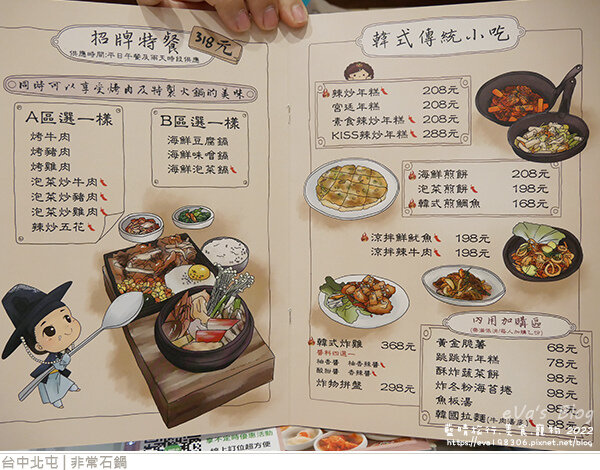 招牌特餐 318元
供應時間:平日午餐及兩天時段供應
同時可以享受烤肉及特製火鍋的美味
A區選一樣
烤牛肉
烤豬肉
烤雞肉
泡菜炒牛肉
泡菜炒豬肉
泡菜炒雞肉
辣炒五花
B區選一樣
海鮮豆腐鍋
海鮮味噌鍋
海鮮泡菜鍋
韓式傳統小吃
辣炒年糕 208元
宮廷年糕 208元
素食辣炒年糕 208元
KISS辣炒年糕 288元
海鮮煎餅 208元
泡菜煎餅 198元
韓式煎鯛魚 168元
涼拌鮮魷魚 198元
涼拌辣牛肉 198元
韓式炸雞 368元
醬料四選一
柚香醬 柚香辣醬
酸甜醬 香辣醬
炸物拼盤 298元
內用加購區
黃金脆薯 68元
跳跳炸年糕 78元
酥炸蔬菜餅 98元
炸冬粉海苔捲 98元
魚板湯 98元
韓國拉麵
eva's Blog
2022
http://eva198306.pixnet.net/blog
線上訂位超方便
台中北屯 | 非常石鍋